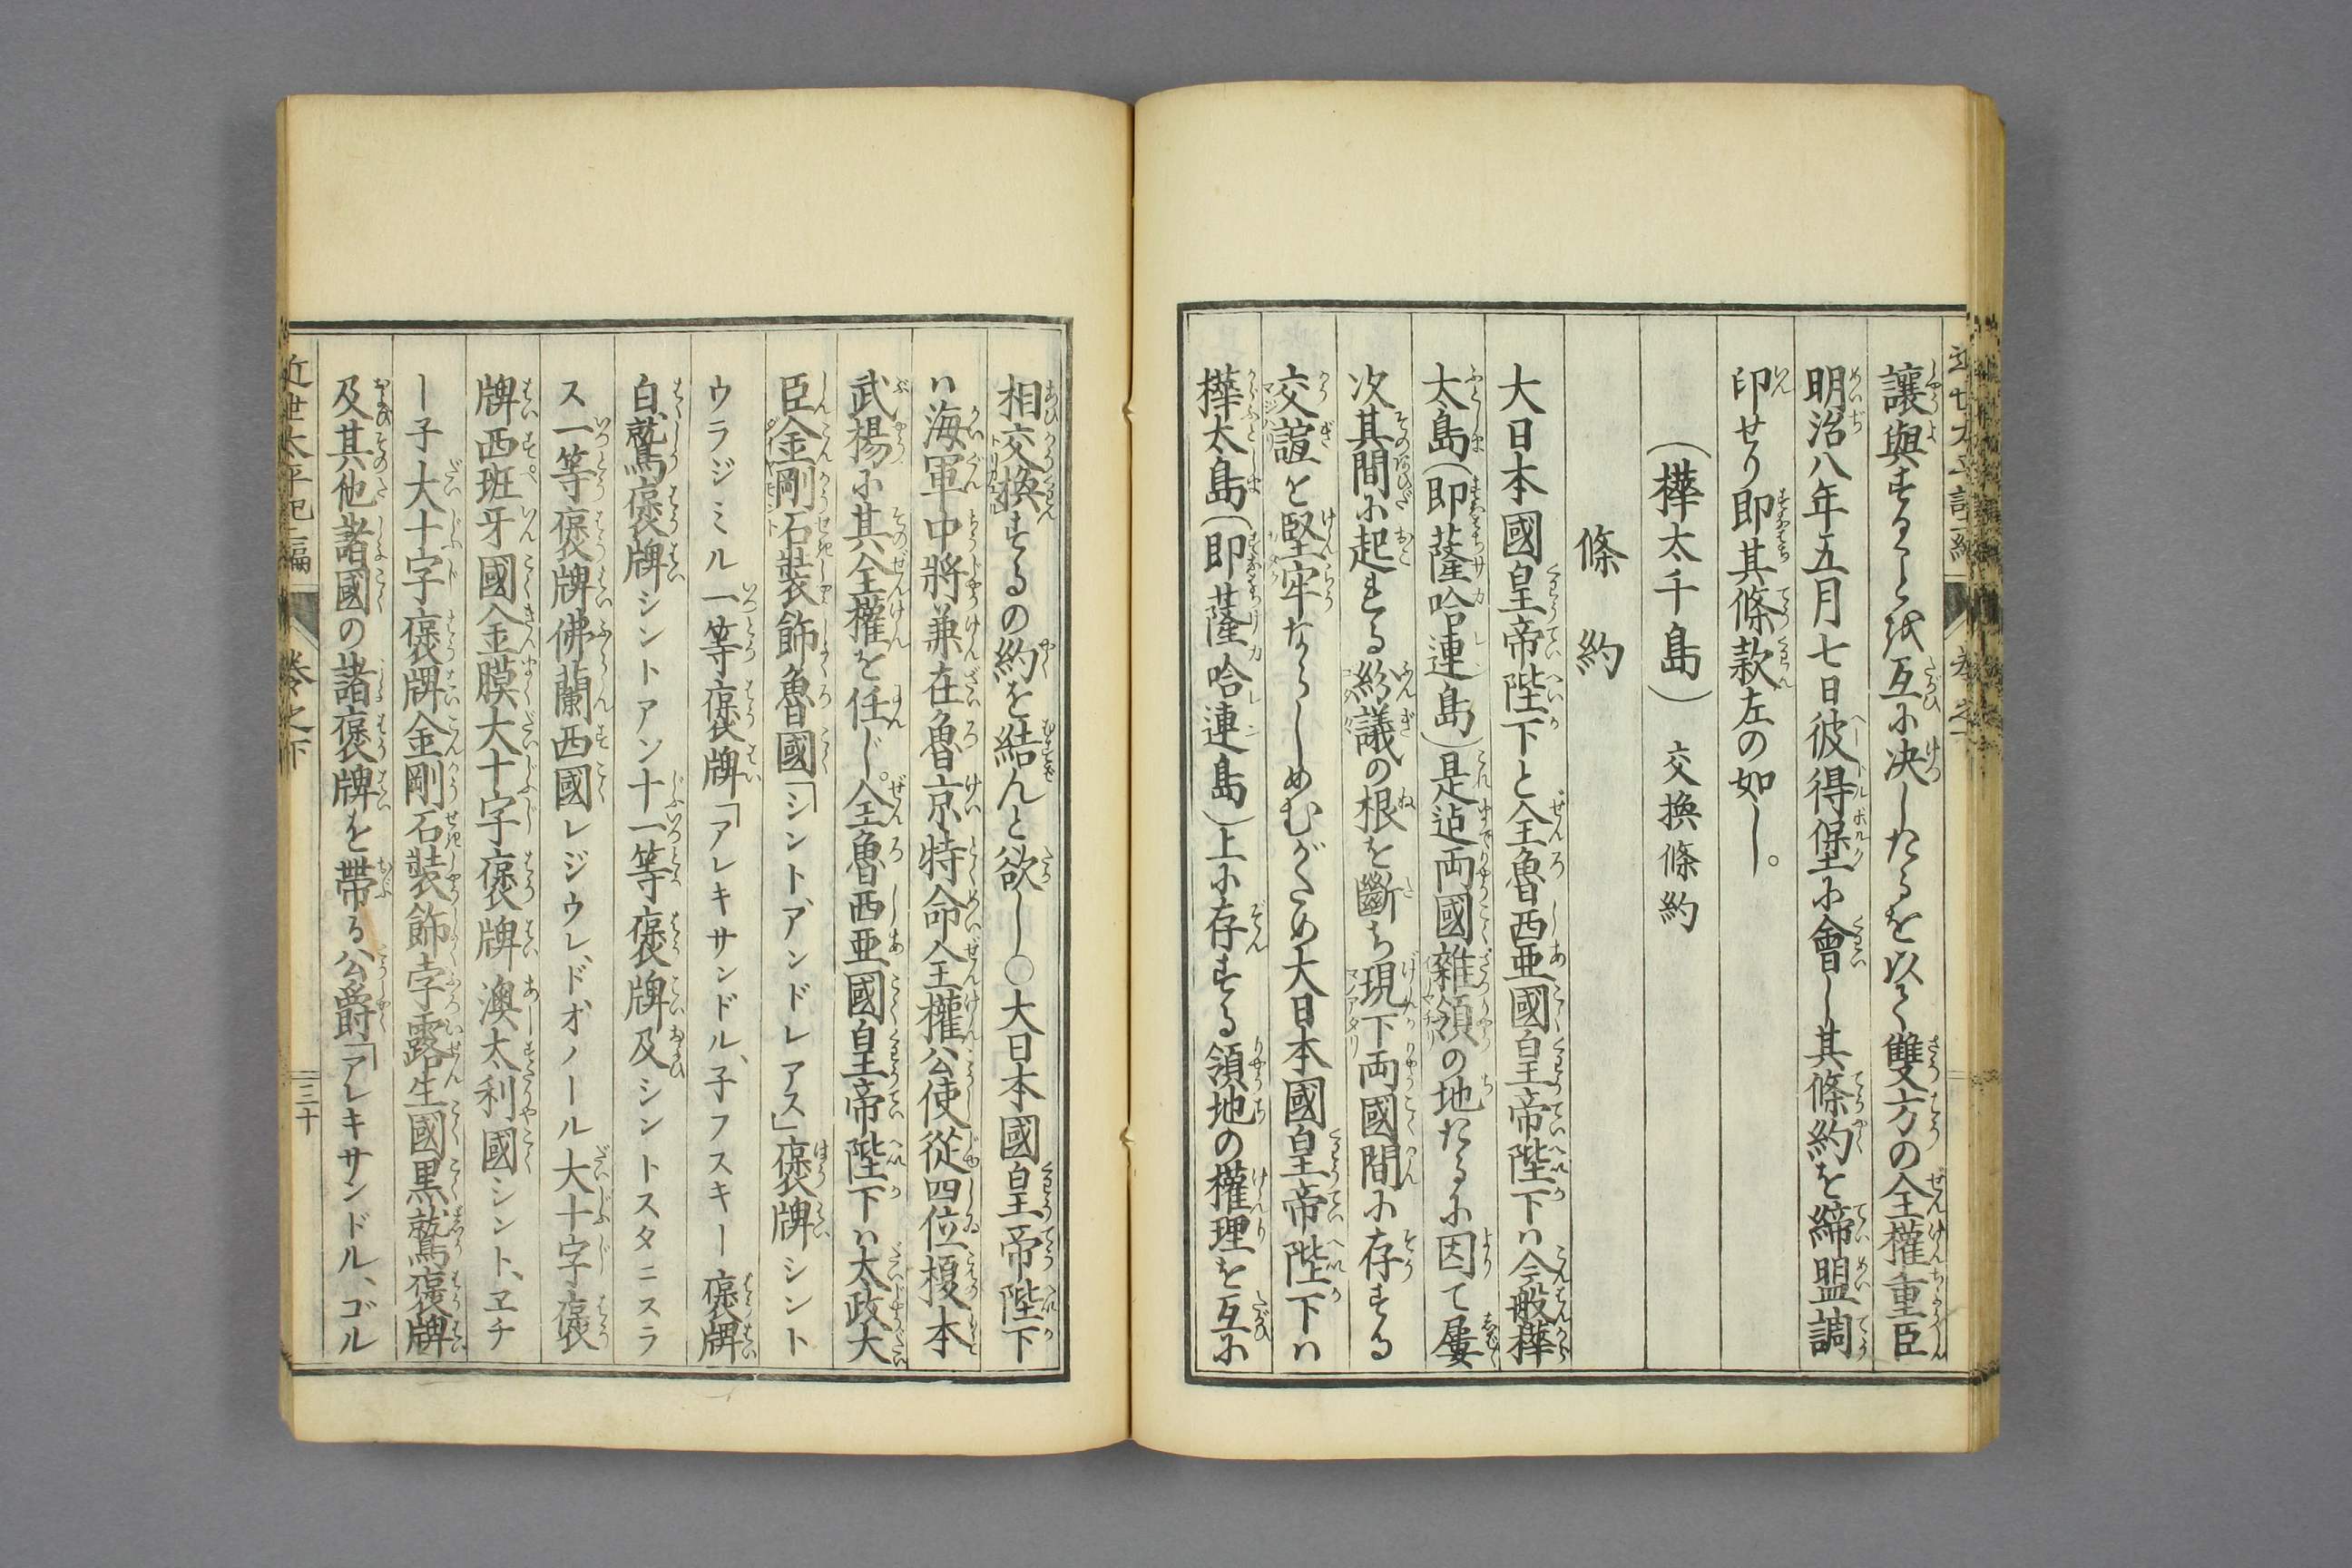 讓與するこを互に決したるを以て雙方の全權重臣
明治八年五月七日彼得堡に會し其條約を締盟調
印せり即其條款左の如し。
(樺太千島) 交換條約
條約
大日本國皇帝陛下と全魯西亜國皇帝陛下ハ今般樺
太島(即薩哈連島)是迠両國雜領の地たるに因て屢
次其間に起れる紛議の根を斷ち現下両國間に存する
交誼を堅牢ならしめむがため大日本國皇帝陛下ハ
樺太島(即薩哈連島)上に存する領地の權理を互に
相交換するの約を結んと欲し〇大日本國皇帝陛下
ハ海軍中將兼在魯京特命全權公使從四位榎本
武揚に其全權を任じ。全魯西亜國皇帝陛下ハ太政大
臣金剛石裝飾魯國「シント、アンドレアス」褒牌シント
ウラジミル一等褒牌「アレキサンドル、子フスキー褒牌
白鷲褒牌シントアンン十一等褒牌及シントスタニスラ
ス一等褒牌佛蘭西國レジウレ、ドオノール大十字褒
牌西班牙國金膜大十字褒牌澳太利國シント、ヱチ
ー子大十字褒牌金剛石裝飾孛露生國黒鷲褒牌
及其他諸國の諸褒牌を帶る公爵「アレキサンドル、ゴル
近世太平記二編 巻之下 三十